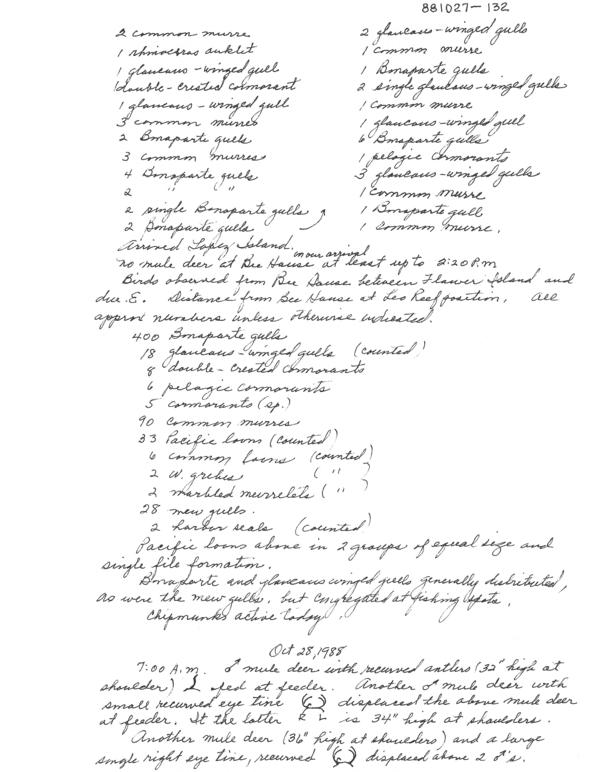 881027-132
2 common murre
1 rhinoceros auklet
1 glaucous-winged gull
1 double-crested cormorant
1 glaucous-winged gull
3 common murres
2 Bonaparte gulls
3 common murres
4 Bonaparte gulls
2 " "
2 single Bonaparte gulls
2 Bonaparte gulls
2 glaucous-winged gulls
1 common murre
1 Bonaparte gulls
2 single glaucous-winged gulls
1 common murre
1 glaucous-winged gull
6 Bonaparte gulls
1 pelagic cormorants
3 glaucous-winged gulls
1 common murre
1 Bonaparte gull
1 common murre.
Arrived Lopez Island.
No mule deer at Bee House on our arrival at least up to 2:20 P.m
Birds observed from Bee House between Flower Island and
due E. Distance from Bee House at Leo Reef position, all
approx numbers unless otherwise indicated.
400 Bonaparte gulls
18 glaucous-winged gulls (counted)
8 double-crested cormorants
6 pelagic cormorants
5 cormorants (sp.)
90 common murres
33 Pacific loons (counted)
6 common loons (counted)
2 w. grebes ( " )
2 marbled murrelets ( " )
28 mew gulls.
2 harbor seals (counted)
Pacific loons above in 2 groups of equal size and
single file formation.
Bonaparte and glaucous winged gulls generally distributed,
as were the mew gulls, but congregated at fishing spots.
Chipmunks active today.
Oct 28, 1988
7:00 A.m. ♂ mule deer with recurved antlers (32" high at
shoulder) fed at feeder. Another ♂ mule deer with
small recurved eye tine displaced the above mule deer
at feeder. If the latter R L is 34" high at shoulders.
Another mule deer (36" high at shoulders) and a large
single right eye tine, recurved displaced above 2 ♂'s.